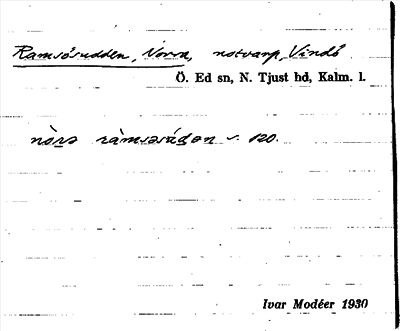 Ramsösudden, Norra, notvarp, Vindö
Ö. Ed sn, N. Tjust hd, Kalm. l.
nòrə ràmsəsúdən s. 120.
Ivar Modéer 1930